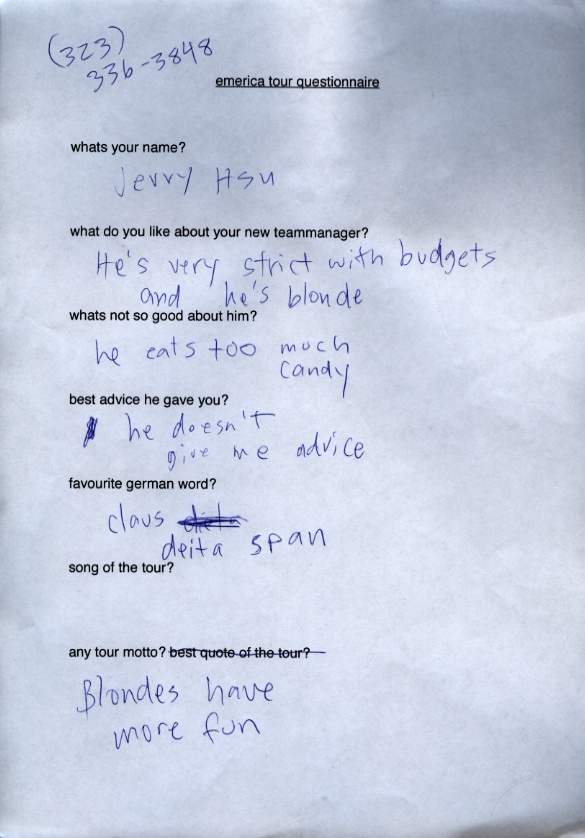 (323)
336-3848
emerica tour questionnaire
whats your name?
Jerry Hsu
what do you like about your new teammanager?
He's very strict with budgets
and he's blonde
whats not so good about him?
he eats too much
candy
best advice he gave you?
he doesn't
give me advice
favourite german word?
claus
deita span
song of the tour?
any tour motto? best quote of the tour?
Blondes have
more fun